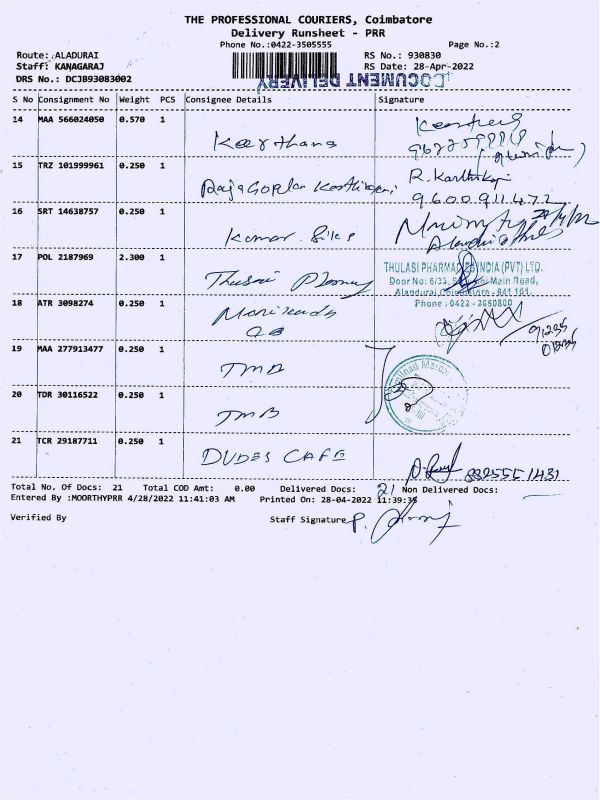 THE PROFESSIONAL COURIERS, Coimbatore
Delivery Runsheet - PRR
Phone No.:0422-3505555 Page No.:2
Route: ALADURAI RS No.: 930830
Staff: KANAGARAJ RS Date: 28-Apr-2022
DRS No.: DCJB93083002
DOCUMENT DELIVERY
S No Consignment No Weight PCS Consignee Details Signature
14 MAA 566024050 0.570 1 Keerthana
15 TRZ 101999961 0.250 1 R. Karthik
9600911472
16 SRT 14638757 0.250 1 Kumar Silks
17 POL 2187969 2.300 1 THULASI PHARMACIES INDIA (PVT) LTD.
Door No: 6/33, Main Road,
Alandurai, Coimbatore - 641 101.
Phone : 0422 - 2650800
18 ATR 3098274 0.250 1
19 MAA 277913477 0.250 1 TMB
20 TDR 30116522 0.250 1 TMB
21 TCR 29187711 0.250 1 DUDES CAFE
Total No. Of Docs: 21 Total COD Amt: 0.00 Delivered Docs: 21 Non Delivered Docs:
Entered By :MOORTHYPRR 4/28/2022 11:41:03 AM Printed On: 28-04-2022 11:39:35
Verified By Staff Signature